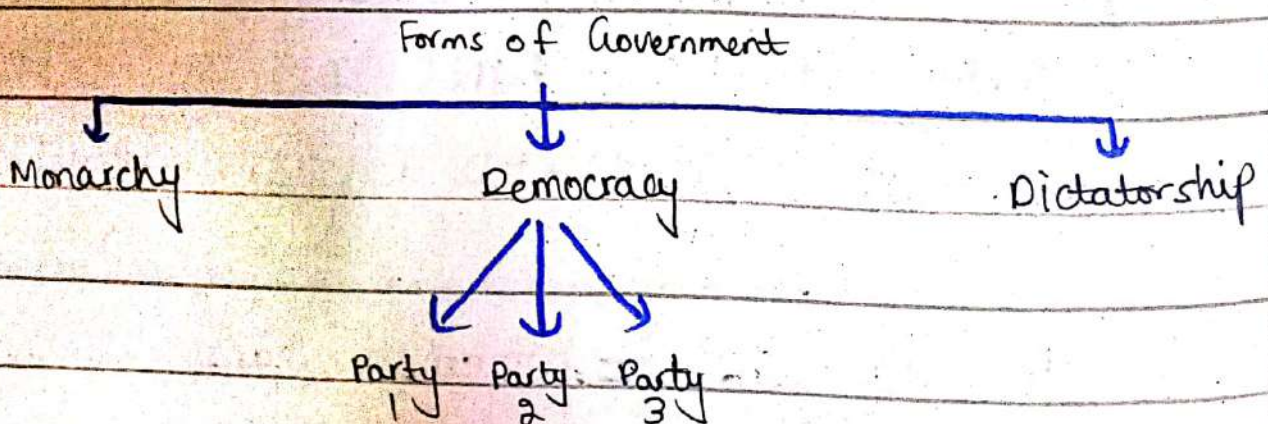 Forms of Government
Monarchy Democracy Dictatorship
Party Party Party
1 2 3